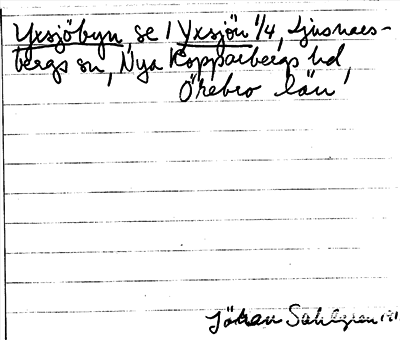 Yxsjöbyn, se 1 Yxsjön 1/4, Ljusnars-
bergs sn, Nya Kopparbergs hd,
Örebro län
Johan Sahlgren